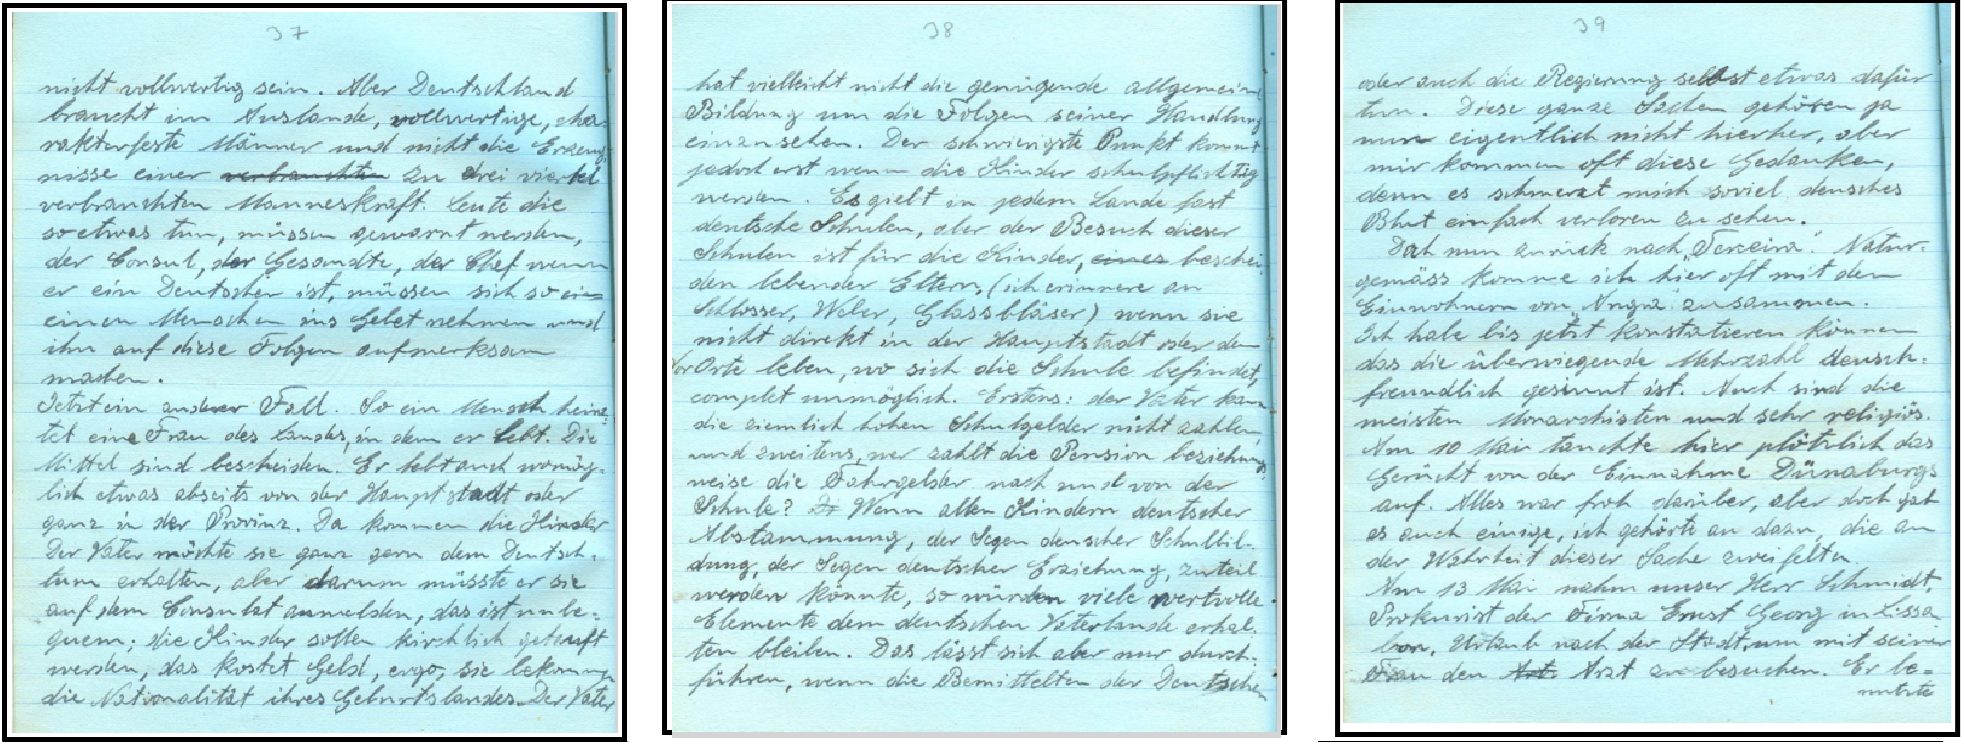 37
nicht vollwertig sein. Aber Deutschland
braucht im Auslande, vollwertige, cha-
rakterfeste Männer und nicht die Erzeug-
nisse einer verbrauchten zu drei viertel
verbrauchten Manneskraft. Leute die
so etwas tun, müssen gewarnt werden,
der Consul, der Gesandte, der Chef wenn
er ein Deutscher ist, müssen sich so
einen Menschen ins Gebet nehmen und
ihn auf diese Folgen aufmerksam
machen.
Jetzt ein anderer Fall. So ein Mensch heira-
tet eine Frau des Landes, in dem er lebt. Die
Mittel sind bescheiden. Er lebt auch womög-
lich etwas abseits von der Hauptstadt oder
ganz in der Provinz. Da kommen die Kinder
Der Vater möchte sie ganz gern dem Deutsch-
tum erhalten, aber darum müsste er sie
auf dem Consulat anmelden, das ist unbe-
quem; die Kinder sollen kirchlich getauft
werden, das kostet Geld, ergo, sie bekommen
die Nationalität ihres Geburtslandes. Der Vater
38
hat vielleicht nicht die genügende allgemeine
Bildung um die Folgen seiner Handlung
einzusehen. Der schwierigste Punkt kommt
jedoch erst wenn die Kinder schulpflichtig
werden. Es giebt in jedem Lande fast
deutsche Schulen, aber der Besuch dieser
Schulen ist für die Kinder, eines beschei-
den lebender Eltern, (ich erinnere an
Schlosser, Weber, Glassbläser) wenn sie
nicht direkt in der Hauptstadt oder dem
Vororte leben, wo sich die Schule befindet,
complet unmöglich. Erstens: der Vater kann
die ziemlich hohen Schulgelder nicht zahlen
und zweitens, wer zahlt die Pension beziehungs
weise die Fahrgelder nach und von der
Schule? Wenn allen Kindern deutscher
Abstammung, der Segen deuscher Schulbil-
dung, der Segen deutscher Erziehung, zuteil
werden könnte, so würden viele wertvolle
Elemente dem deutschen Vaterlande erhal-
ten bleiben. Das lässt sich aber nur durch-
führen, wenn die Bemittelten der Deutschen
39
oder auch die Regierung selbst etwas dafür
tun. Diese ganze Sachen gehören ja
nun eigentlich nicht hierher, aber
mir kommen oft diese Gedanken,
denn es schmerzt mich soviel deusches
Blut einfach verloren zu sehen.
Doch nun zurück nach „Terceira". Natur-
gemäss komme ich hier oft mit den
Einwohnern von „Angra" zusammen.
Ich habe bis jetzt konstatieren können
das die überwiegende Mehrzahl deusch-
freundlich gesinnt ist. Auch sind die
meisten Monarchisten und sehr religiös.
Am 10 Mai tauchte hier plötzlich das
Gerücht von der Einnahme Dünaburgs
auf. Alles war froh darüber, aber doch gab
es auch einige, ich gehörte an dazu, die an
der Wahrheit dieser Sache zweifelten.
Am 13 Mai nahm unser Herr Schmidt,
Prokurist der Firma Ernst Georg in Lissa
bon, Urlaub nach der Stadt, um mit seiner
Frau den Art. Arzt zu besuchen. Er be-
nutzte